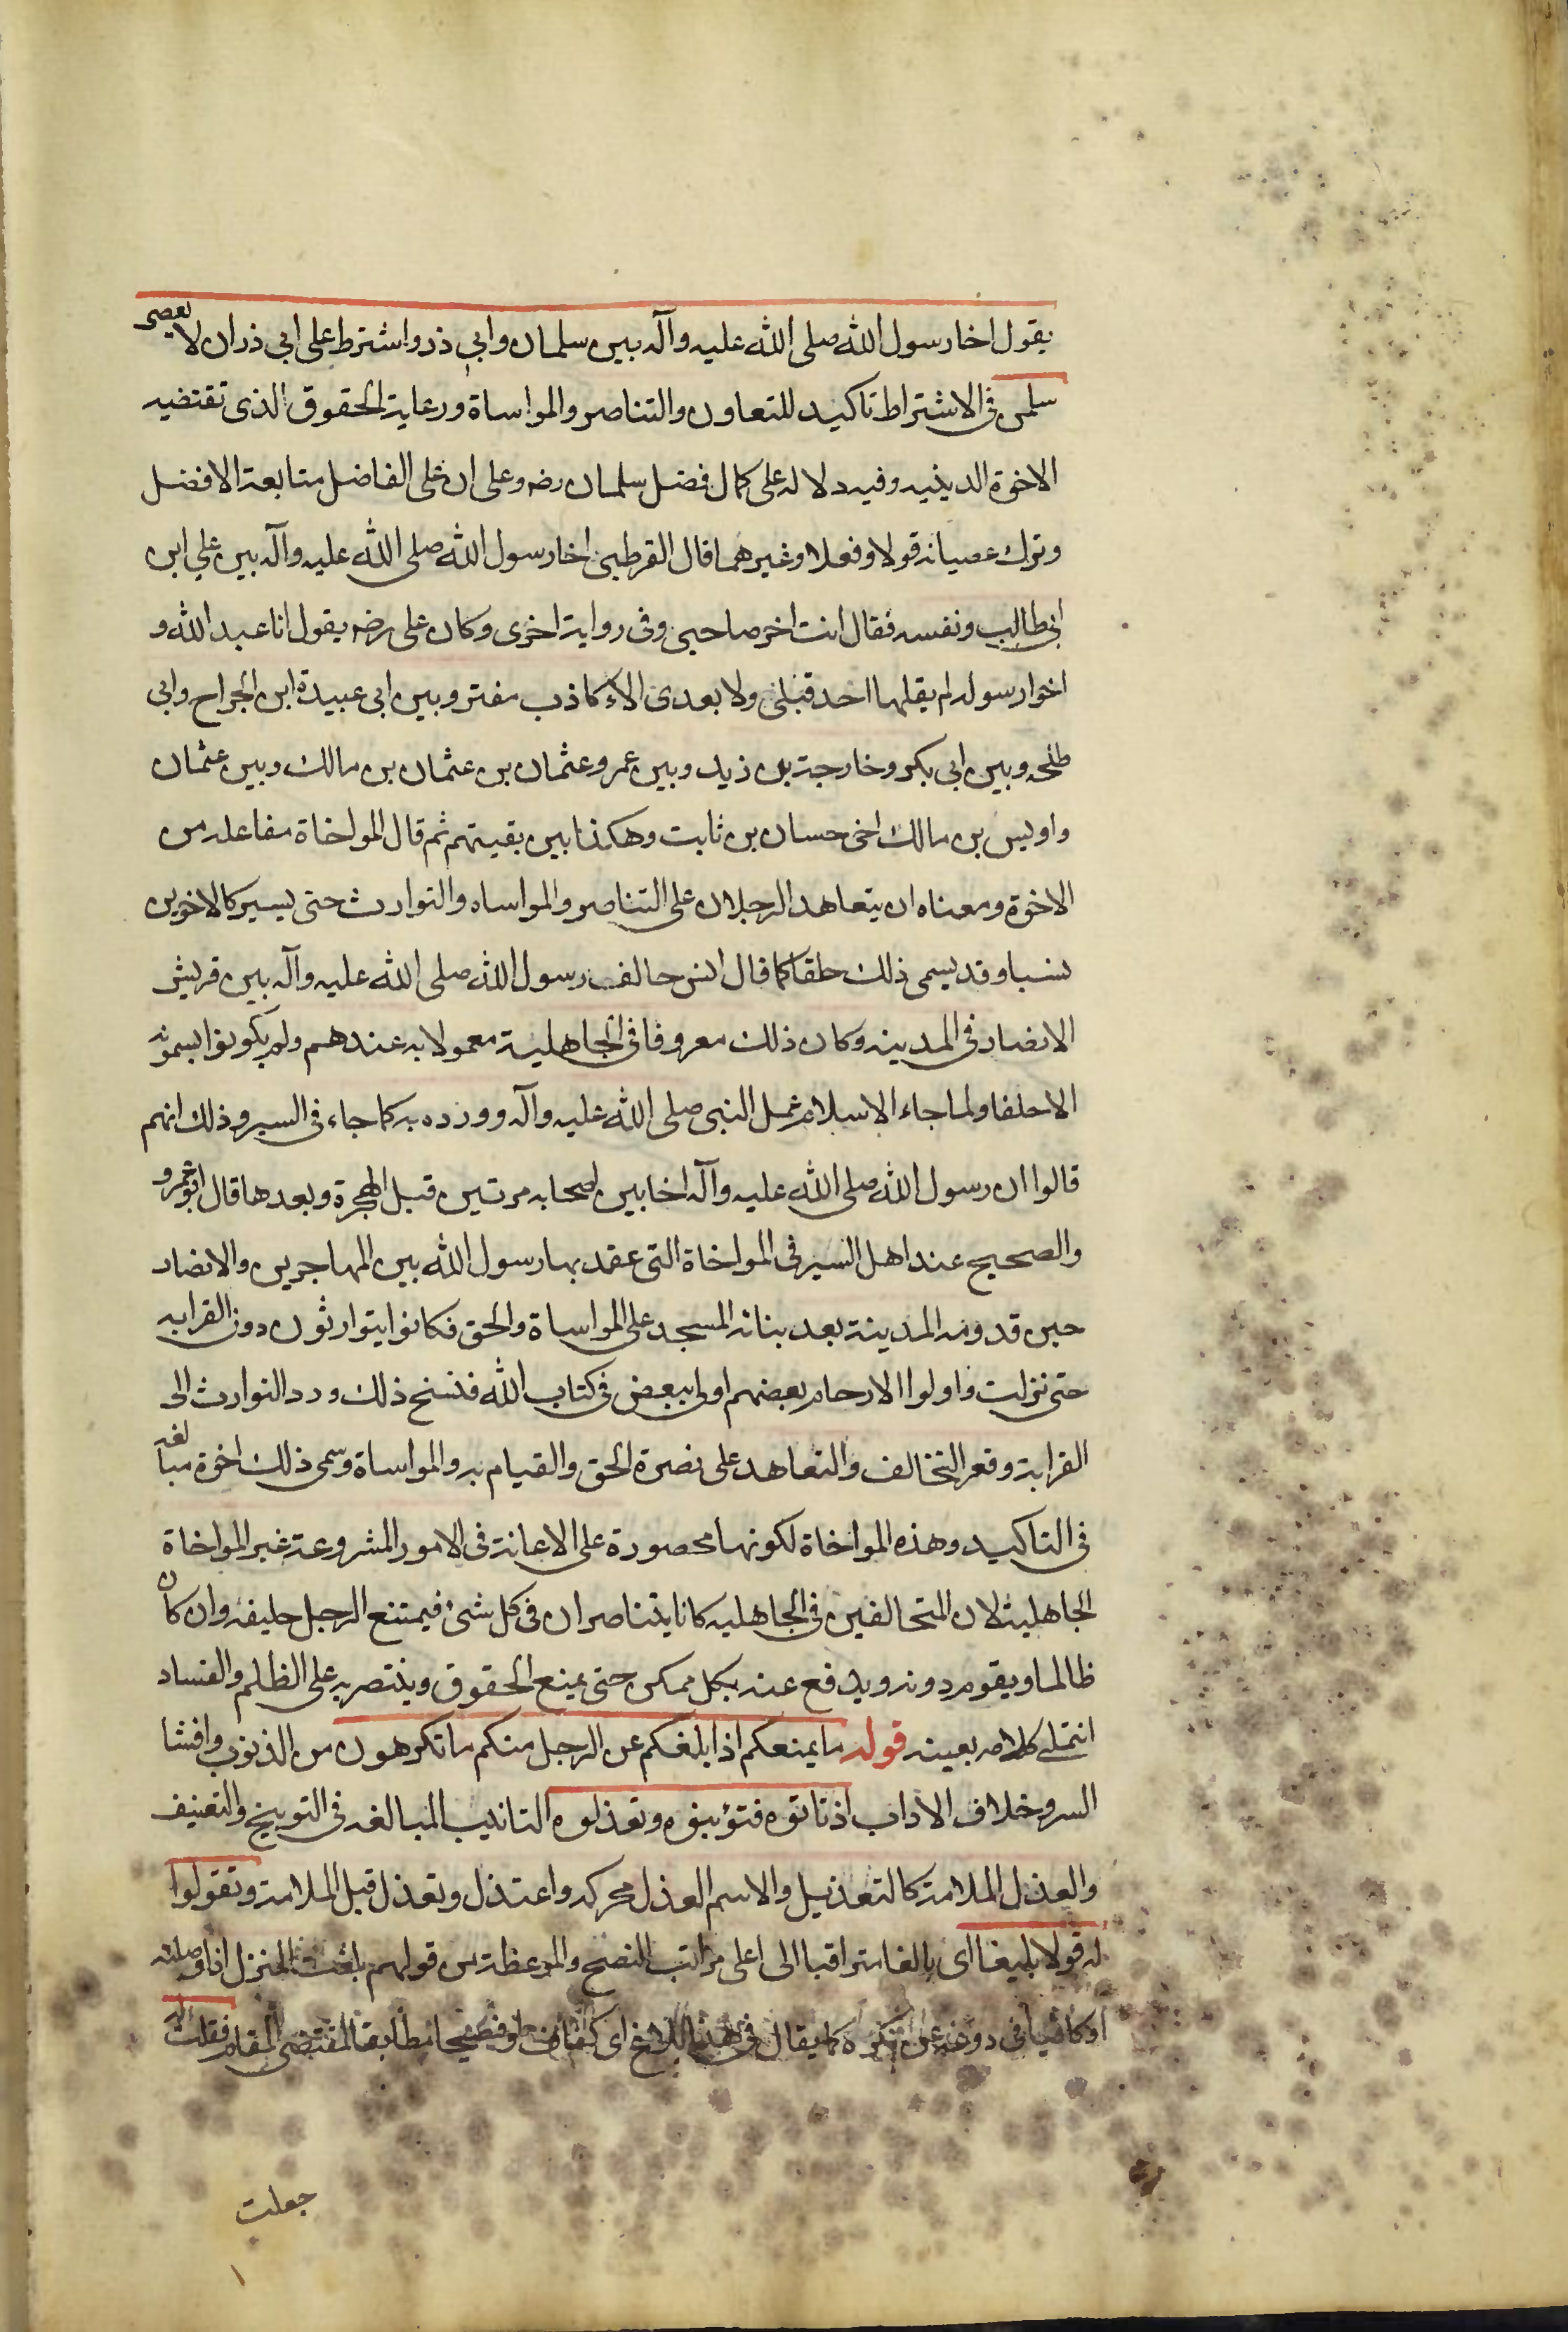 يقول اخا رسول الله صلى الله عليه وآله بين سلمان وابي ذر واشترط على ابي ذر ان لا يعصى
سلمن فى الاشتراط تاكيد للتعاون والتناصر والمواساة ورعاية الحقوق الذى تقتضيه
الاخوة الدينيه وفيه دلاله على كمال فضل سلمان رضه وعلى ان على الفاضل متابعة الافضل
وترك عصيانه قولا وفعلا وغيرهما قال القرطبى اخا رسول الله صلى الله عليه وآله بين على ابن
ابى طالب ونفسه فقال انت اخى وصاحبى وفى رواية اخرى وكان على رضه يقول انا عبد الله و
اخوا رسوله لم يقلها احد قبلى ولا بعدى الا كاذب مفتر وبين ابى عبيدة ابن الجراح وابى
طلحه وبين ابى بكر وخارجة بن زيد وبين عمر وعثمان بن عثمان بن مالك وبين عثمان
واويس بن مالك اخى حسان بن ثابت وهكذا بين بقيتهم ثم قال المواخاة مفاعله من
الاخوة ومعناه ان يتعاهد الرجلان على التناصر والمواساه والتوارث حتى يسير كالاخوين
نسبا وقد يسمى ذلك حلفا كما قال انس حالف رسول الله صلى الله عليه وآله بين قريش
الانصار فى المدينه وكان ذلك معروفا فى الجاهلية معمولا به عندهم ولم يكونوا يسمونه
الا حلفا ولما جاء الاسلام عمل النبى صلى الله عليه وآله وورده به كما جاء فى السير وذلك انهم
قالوا ان رسول الله صلى الله عليه وآله اخا بين اصحابه مرتين قبل الهجرة وبعدها قال ابو عمرو
والصحيح عند اهل السير فى المواخاة التى عقد بها رسول الله بين المهاجرين والانصار
حين قدومه المدينة بعد بنائه المسجد على المواساة والحق فكانوا يتوارثون دون القرابه
حتى نزلت واولوا الارحام بعضهم اولى ببعض فى كتاب الله فنسخ ذلك ورد التوارث الى
القرابة وقع التخالف والتعاهد على نصرة الحق والقيام به والمواساة وسمى ذلك اخوة مبالغه
فى التاكيد وهذه المواخاة لكونها محصورة على الاعانة فى الامور المشروعة غير المواخاة
الجاهلية لان المتحالفين فى الجاهليه كانا يتناصران فى كل شئ فيمتنع الرجل حليفه وان كان
ظالما ويقوم دونه ويدفع عنه بكل ممكن حتى يمنع الحقوق وينتصر به على الظلم والفساد
انتهى كلامه بعينه قوله ما يمنعكم اذا بلغكم عن الرجل منكم ما تكرهون من الذنوب وافشا
السر وخلاف الاداب اذ تاتوه فتؤنبوه وتعذلوه التانيب المبالغه فى التوبيخ والتعنيف
والعذل الملامة كالتعذيل والاسم العذل محركه واعتذل وتعذل قبل الملامة وتقولوا
له قولا بليغا اى بالغا متراقبا الى اعلى مراتب النصح والموعظة من قولهم بلغت المنزل اذا وصلته
او كافيا فى كما يقال فى هذا بلاغ اى كفاف او فصيحا مطابقا لمقتضى المقام فقلت له
جعلت
١